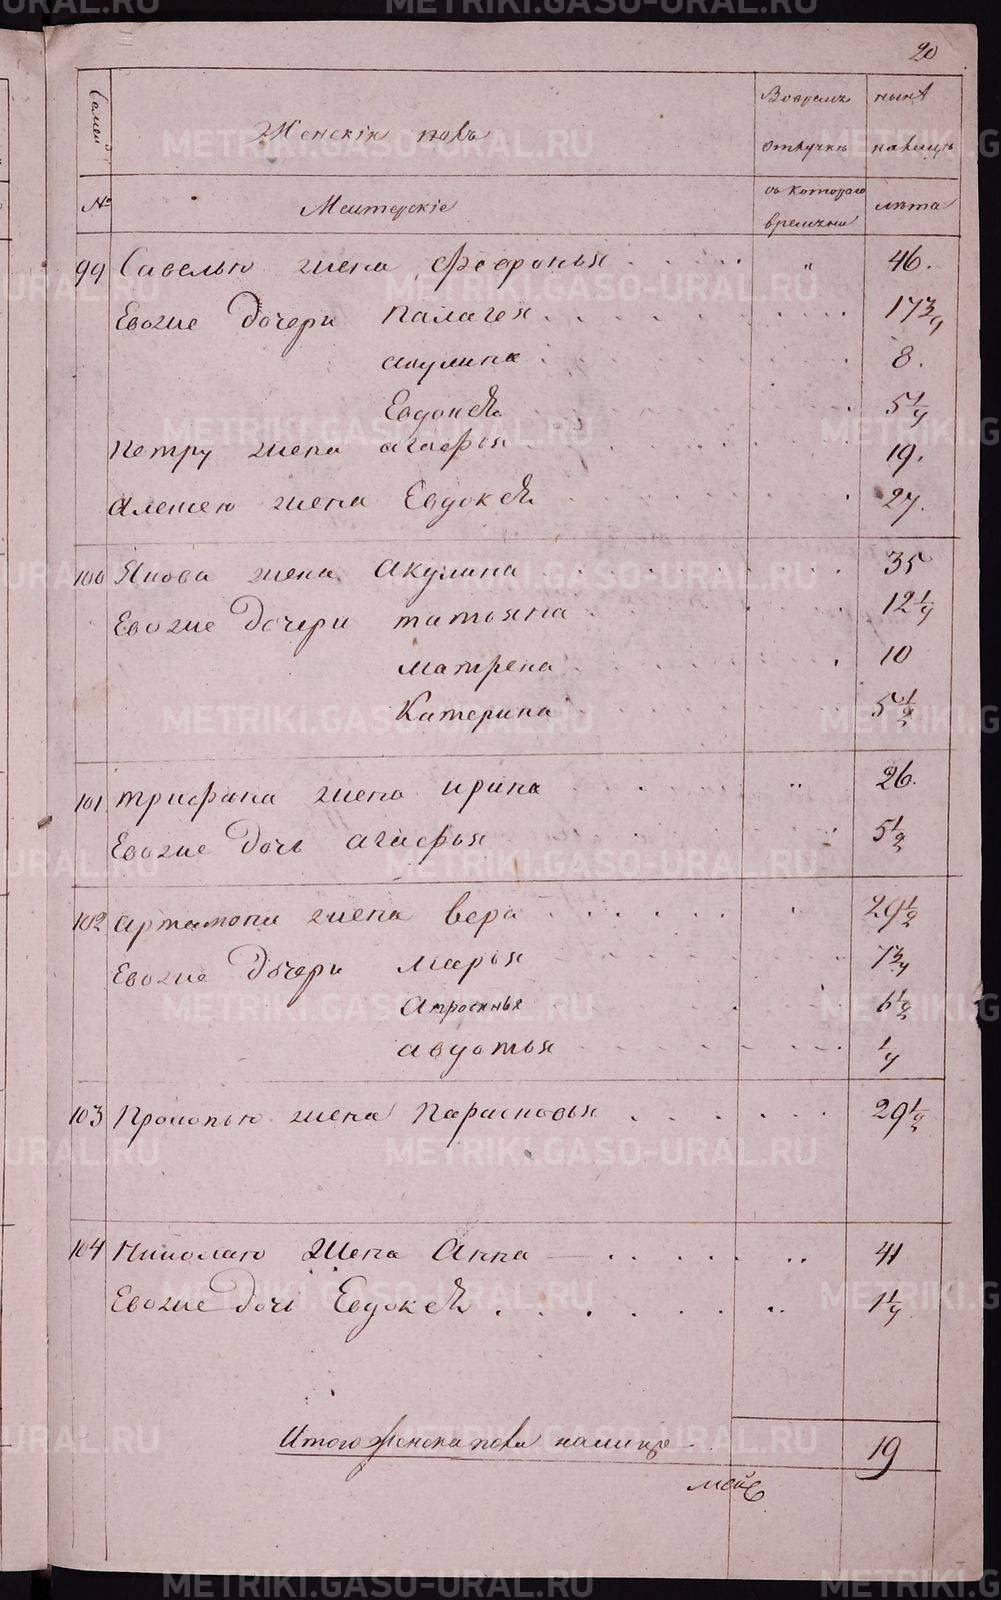 20
Семьи
Женскій полъ
Вовремя
отлучкѣ
нынѣ
налицѣ
№
Мастерскіе
съ котораго
времяни
лѣта
99 Савелью жена Февронья 46.
Евоже дочери Палагея 17 3/4
акулина 8.
Евдокея 5 1/4
Петру жена агафья 19.
алексею жена Евдокея 27.
100 Якова жена Акулина 35
Евоже дочери татьяна 12 1/4
матрена 10
Катерина 5 1/2
101 трифана жена ирина 26.
Евоже дочь агафья 5 1/2
102 артамона жена вера 29 1/2
Евоже дочери марья 7 3/4
Апросинья 6 1/2
авдотья 1/4
103 Прокопью жена Парасковья 29 1/2
104 Николаю жена Анна 41
Евоже дочь Евдокея 1 1/4
Итого женска пола налице 19
METRIKI.GASO-URAL.RU